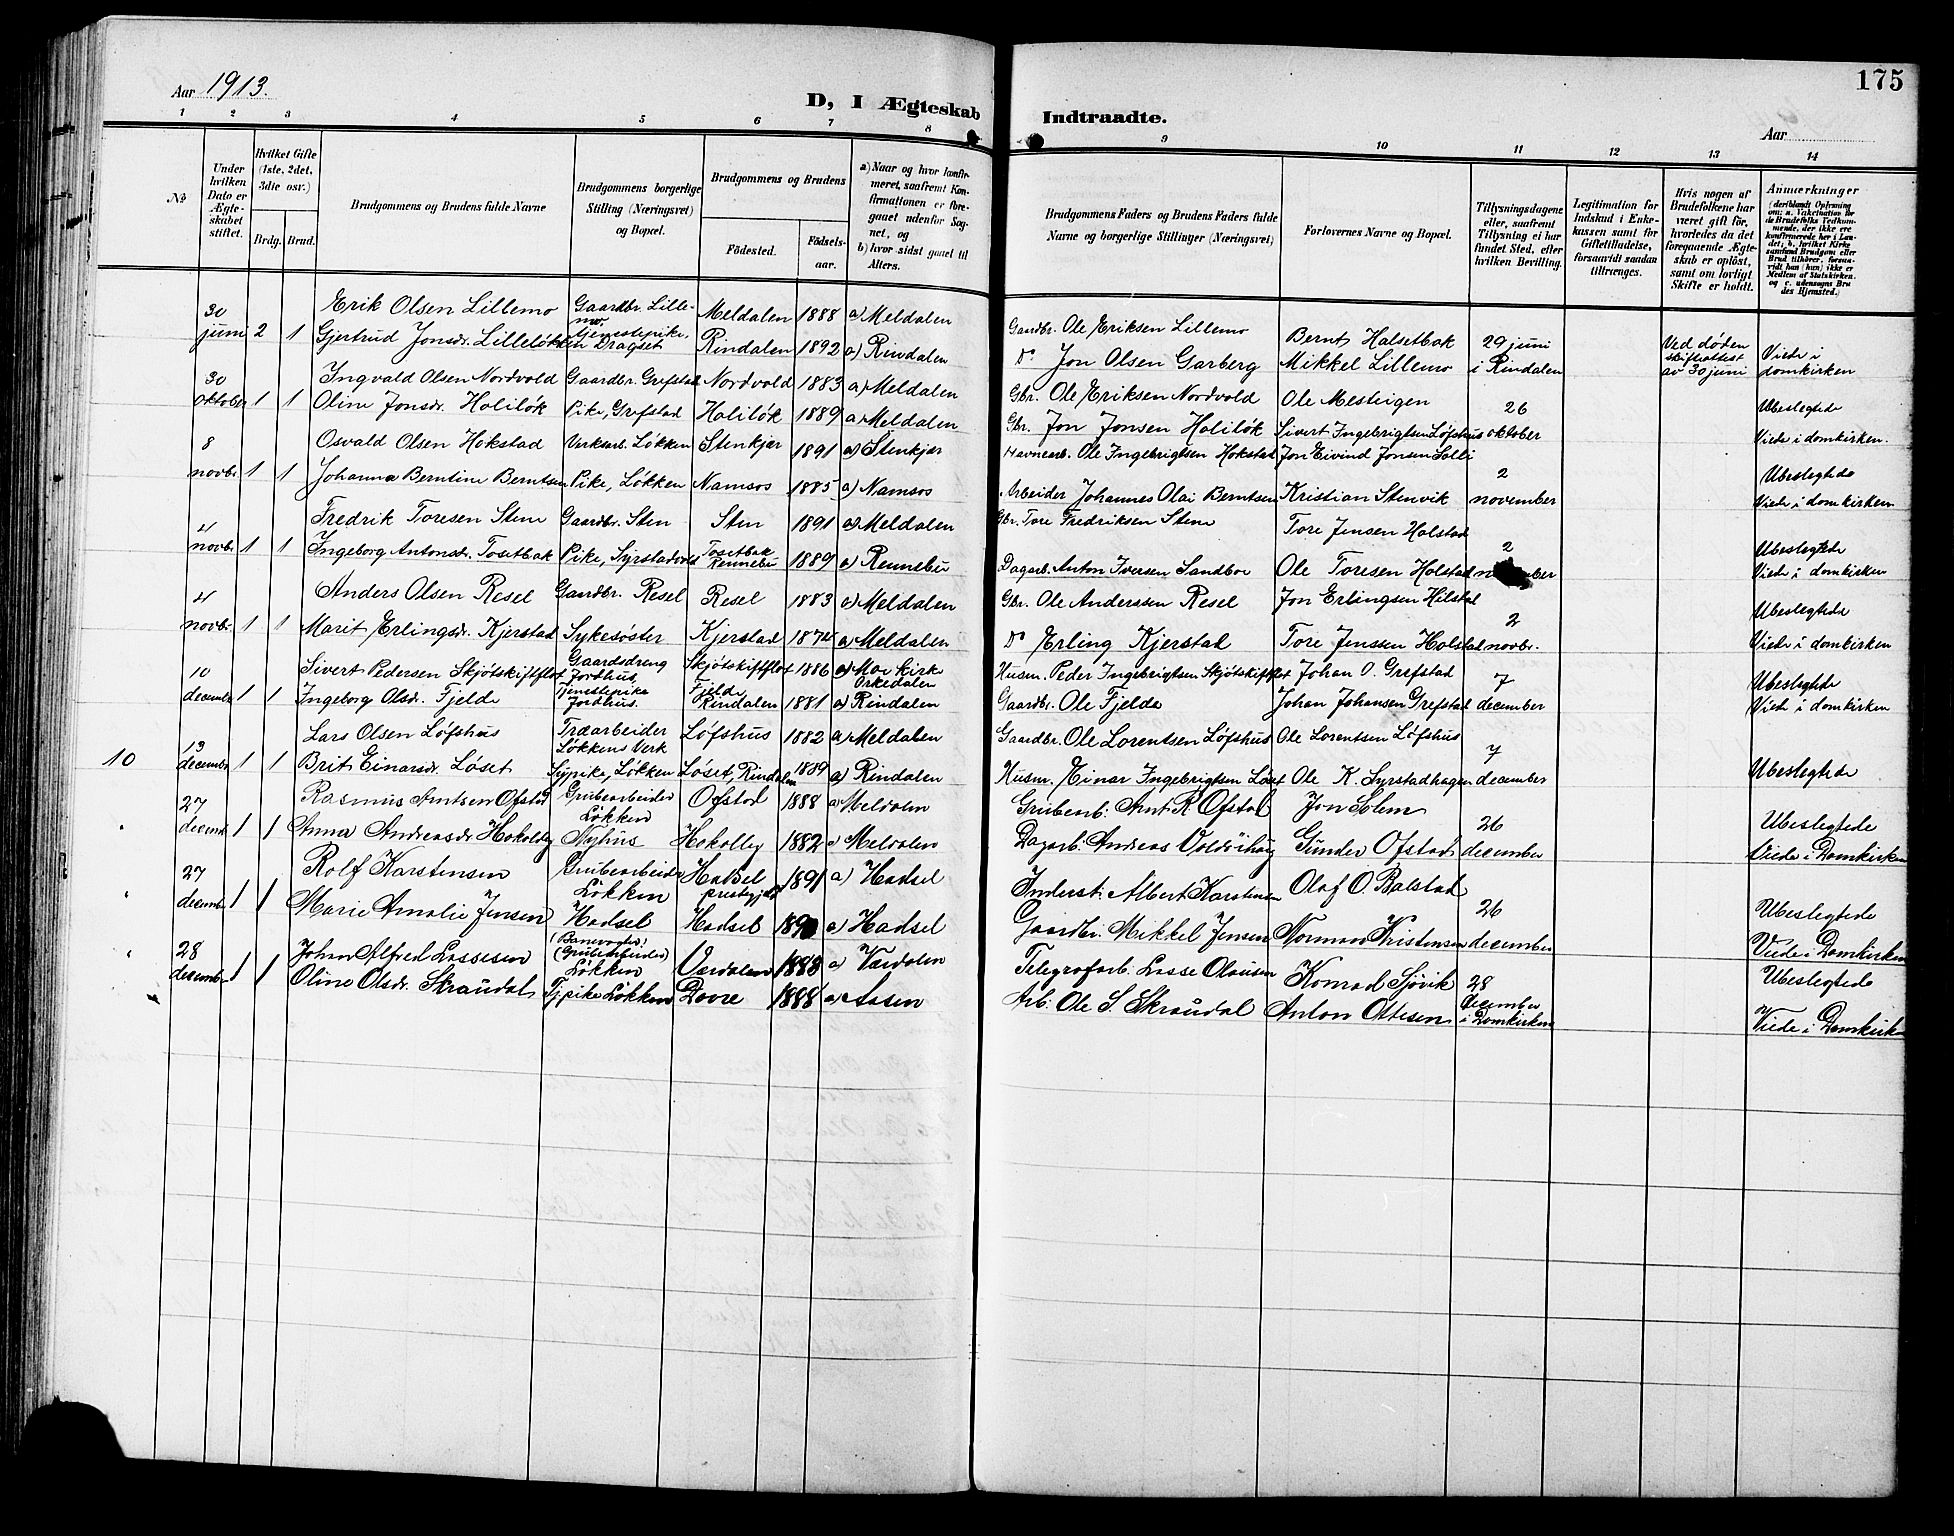 Aar 1913.
D, I Ægteskab
Indtraadte.
Aar
175
1 2 3 4 5 6 7 8 9 10 11 12 13 14
No
Under hvilken Dato er Ægteskabet stiftet.
Hvilket Gifte (1ste, 2det, 3die osv.)
Brdg. Brud.
Brudgommens og Brudens fulde Navne
Brudgommens borgerlige Stilling (Næringsvei) og Bopæl.
Brudgommens og Brudens
Födested.
Födselsaar.
a) Naar og hvor konfirmeret, saafremt Konfirmationen er foregaaet udenfor Sognet, og
b) hvor sidst gaaet til Alters.
Brudgommens Faders og Brudens Faders fulde Navne og borgerlige Stillinger (Næringsvei)
Forlovernes Navne og Bopæl.
Tillysningsdagene eller, saafremt Tillysning ei har fundet Sted, efter hvilken Bevilling.
Legitimation for Indskud i Enkekassen samt for Giftetilladelse, forsaavidt saadan tiltrænges.
Hvis nogen af Brudefolkene har været gift för, hvorledes da det foregaaende Ægteskab er oplöst, samt om lovligt Skifte er holdt.
Anmærkninger
30 juni 2 1
Erik Olsen Lillemo Gaardbr. Lillemo Meldalen 1888 a) Meldalen Gaardbr. Ole Eriksen Lillemo Bernt Halsetbak 29 juni i Rindalen Ved døden skifteattest av 30 juni Viede i domkirken
Gjertrud Jonsdr. Lilleløkken tjenestepike, Dragset Rindalen 1892 a) Rindalen Do Jon Olsen Garberg Mikkel Lillemo
30 oktober 1 1
Ingvald Olsen Nordvold Gaardbr. Grefstad Nordvold 1883 a) Meldalen Gbr. Ole Eriksen Nordvold Ole Mesteigen 26 oktober Ubeslegtede
Oline Jonsdr. Holiløk Pike, Grefstad Holiløk 1889 a) Meldalen Gbr. Jon Jonsen Holiløk Sivert Ingebrigtsen Løfshus Viede i domkirken.
8 novbr. 1 1
Osvald Olsen Hokstad Verksarb. Løkken Stenkjær 1891 a) Stenkjær Havnearb. Ole Ingebrigtsen Hokstad Jon Eivind Jonsen Solli 2 november Ubeslegtede
Johanna Berntine Berntsen Pike, Løkken Namsos 1885 a) Namsos Arbeider Johannes Olai Berntsen Kristian Stenvik Viede i domkirken
4 novbr. 1 1
Fredrik Toresen Sten Gaardbr. Sten Sten 1891 a) Meldalen Gbr. Tore Fredriksen Sten Tore Jensen Holstad 2 november Ubeslegtede
Ingeborg Antonsdr. Tosetbak Pike, Syrstadvold Tosetbak Rennebu 1889 a) Rennebu Dagarb. Anton Iversen Sandbæ Ole Toresen Holstad Viede i domkirken
4 novbr. 1 1
Anders Olsen Resel Gaardbr. Resel Resel 1883 a) Meldalen Gbr. Ole Anderssen Resel Jon Erlingsen Hilstad 2 novbr. Ubeslegtede
Marit Erlingsdr. Kjerstad Sykesøster Kjerstad 1874 a) Meldalen Do Erling Kjerstad Tore Jenssen Holstad Viede i domkirken
10 december 1 1
Sivert Pedersen Skjøtskiftflot Gaardsdreng Jordhus Skjøtskiftflot 1886 a) Moe kirke Orkedalen Husm. Peder Ingebrigtsen Skjøtskiftflot Johan O. Grefstad 7 december Ubeslegtede
Ingeborg Olsdr. Fjelde Tjenestepike Jordhus. Fjelde Rindalen 1881 a) Rindalen Gaardbr. Ole Fjelde Johan Johansen Grefstad Viede i domkirken
10 13 december 1 1
Lars Olsen Løfshus Træarbeider Løkkens Verk Løfshus 1882 a) Meldalen Gaardbr. Ole Lorentsen Løfshus Ole Lorentsen Løfshus 7 december Ubeslegtede
Brit Einarsdr. Løset Sypike, Løkken Løset, Rindalen 1889 a) Rindalen Husm. Einar Ingebrigtsen Løset Ole K. Syrstadhagen
27 decemb. 1 1
Rasmus Arntsen Ofstad Grubearbeider Løkken Ofstad 1888 a) Meldalen Grubearb. Arnt R. Ofstad Jon Solem 26 december Ubeslegtede
Anna Andreasdr. Hokolley Nyhus Hokolley 1882 a) Meldalen Dagarb. Andreas Gunder Ofstad Viede i Domkirken
27 decemb. 1 1
Rolf Karstensen Grubearbeider Løkken Hadsel prestegjeld 1891 a) Hadsel Inderst. Albert Karstensen Olaf O. Balstad 26 december Ubeslegtede
Marie Amalie Jensen Hadsel Hadsel a) Hadsel Gaardbr. Mikkel Jensen Norman Kristensen Viede i Domkirken
28 decembr. 1 1
Johan Alfred Lassesen (Banevogter) (Grubearbeider) Løkken Værdalen 1888 a) Værdalen Telegrafarb. Lasse Olausen Konrad Sjøvik 28 december i Domkirken Ubeslegtede
Oline Olsdr. Skraudal Tjpike Løkken Dovre 1888 a) Aasen Arb. Ole S. Skraudal Anton Ottesen Viede i Domkirken